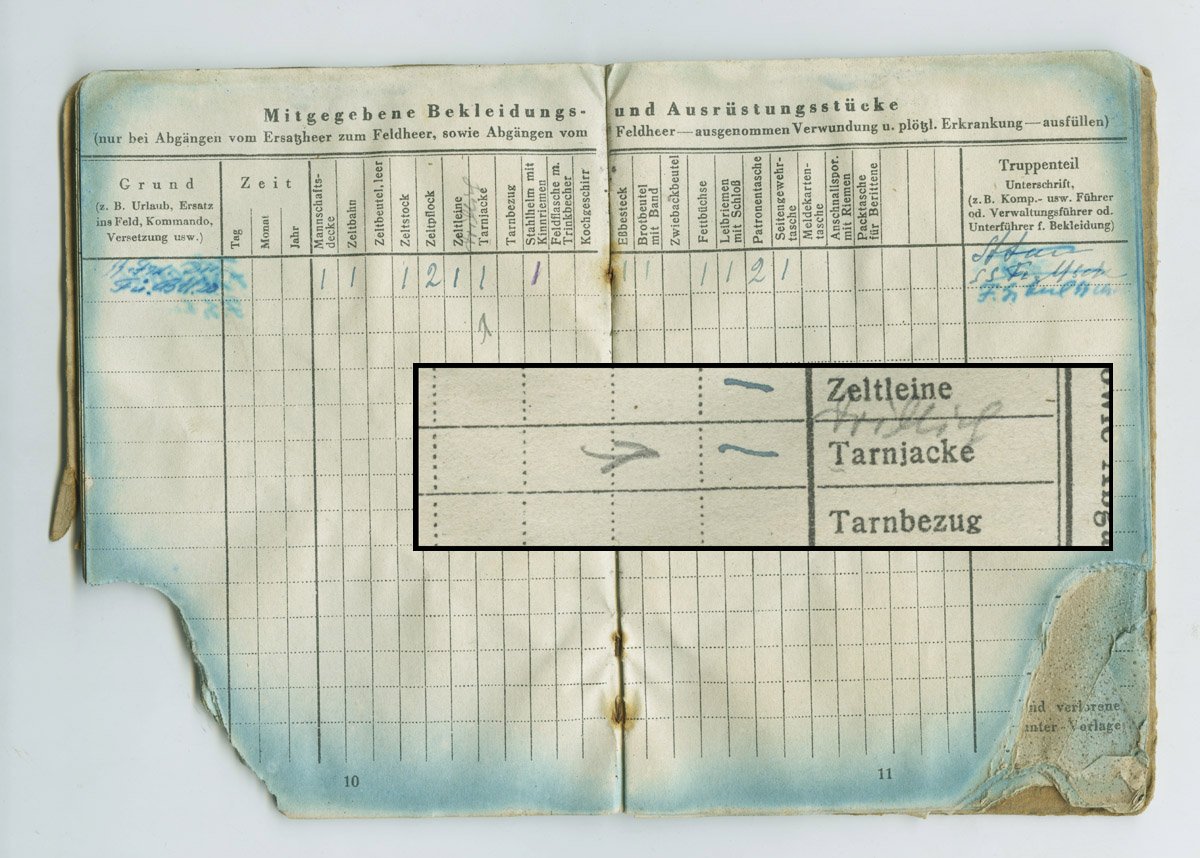 Mitgegebene Bekleidungs- und Ausrüstungsstücke
(nur bei Abgängen vom Ersatzheer zum Feldheer, sowie Abgängen vom Feldheer — ausgenommen Verwundung u. plötzl. Erkrankung — ausfüllen)
Grund
(z. B. Urlaub, Ersatz
ins Feld, Kommando,
Versetzung usw.)
Zeit
Tag
Monat
Jahr
Mannschafts-
decke
Zeltbahn
Zeltbeutel, leer
Zeltstock
Zeltpflock
Zeltleine
Drillich
Tarnjacke
Tarnbezug
Stahlhelm mit
Kinnriemen
Feldflasche m.
Trinkbecher
Kochgeschirr
Eßbesteck
Brotbeutel
mit Band
Zwiebackbeutel
Fettbüchse
Leibriemen
mit Schloß
Patronentasche
Seitengewehr-
tasche
Meldekarten-
tasche
Anschnallspor.
mit Riemen
Packtasche
für Berittene
Truppenteil
Unterschrift,
(z. B. Komp.- usw. Führer
od. Verwaltungsführer od.
Unterführer f. Bekleidung)
1 1 1 2 1 1 1 1 1 1 1 2 1
1
Zeltleine
Drillich
Tarnjacke
Tarnbezug
nd verlorene
unter Vorlage
10
11